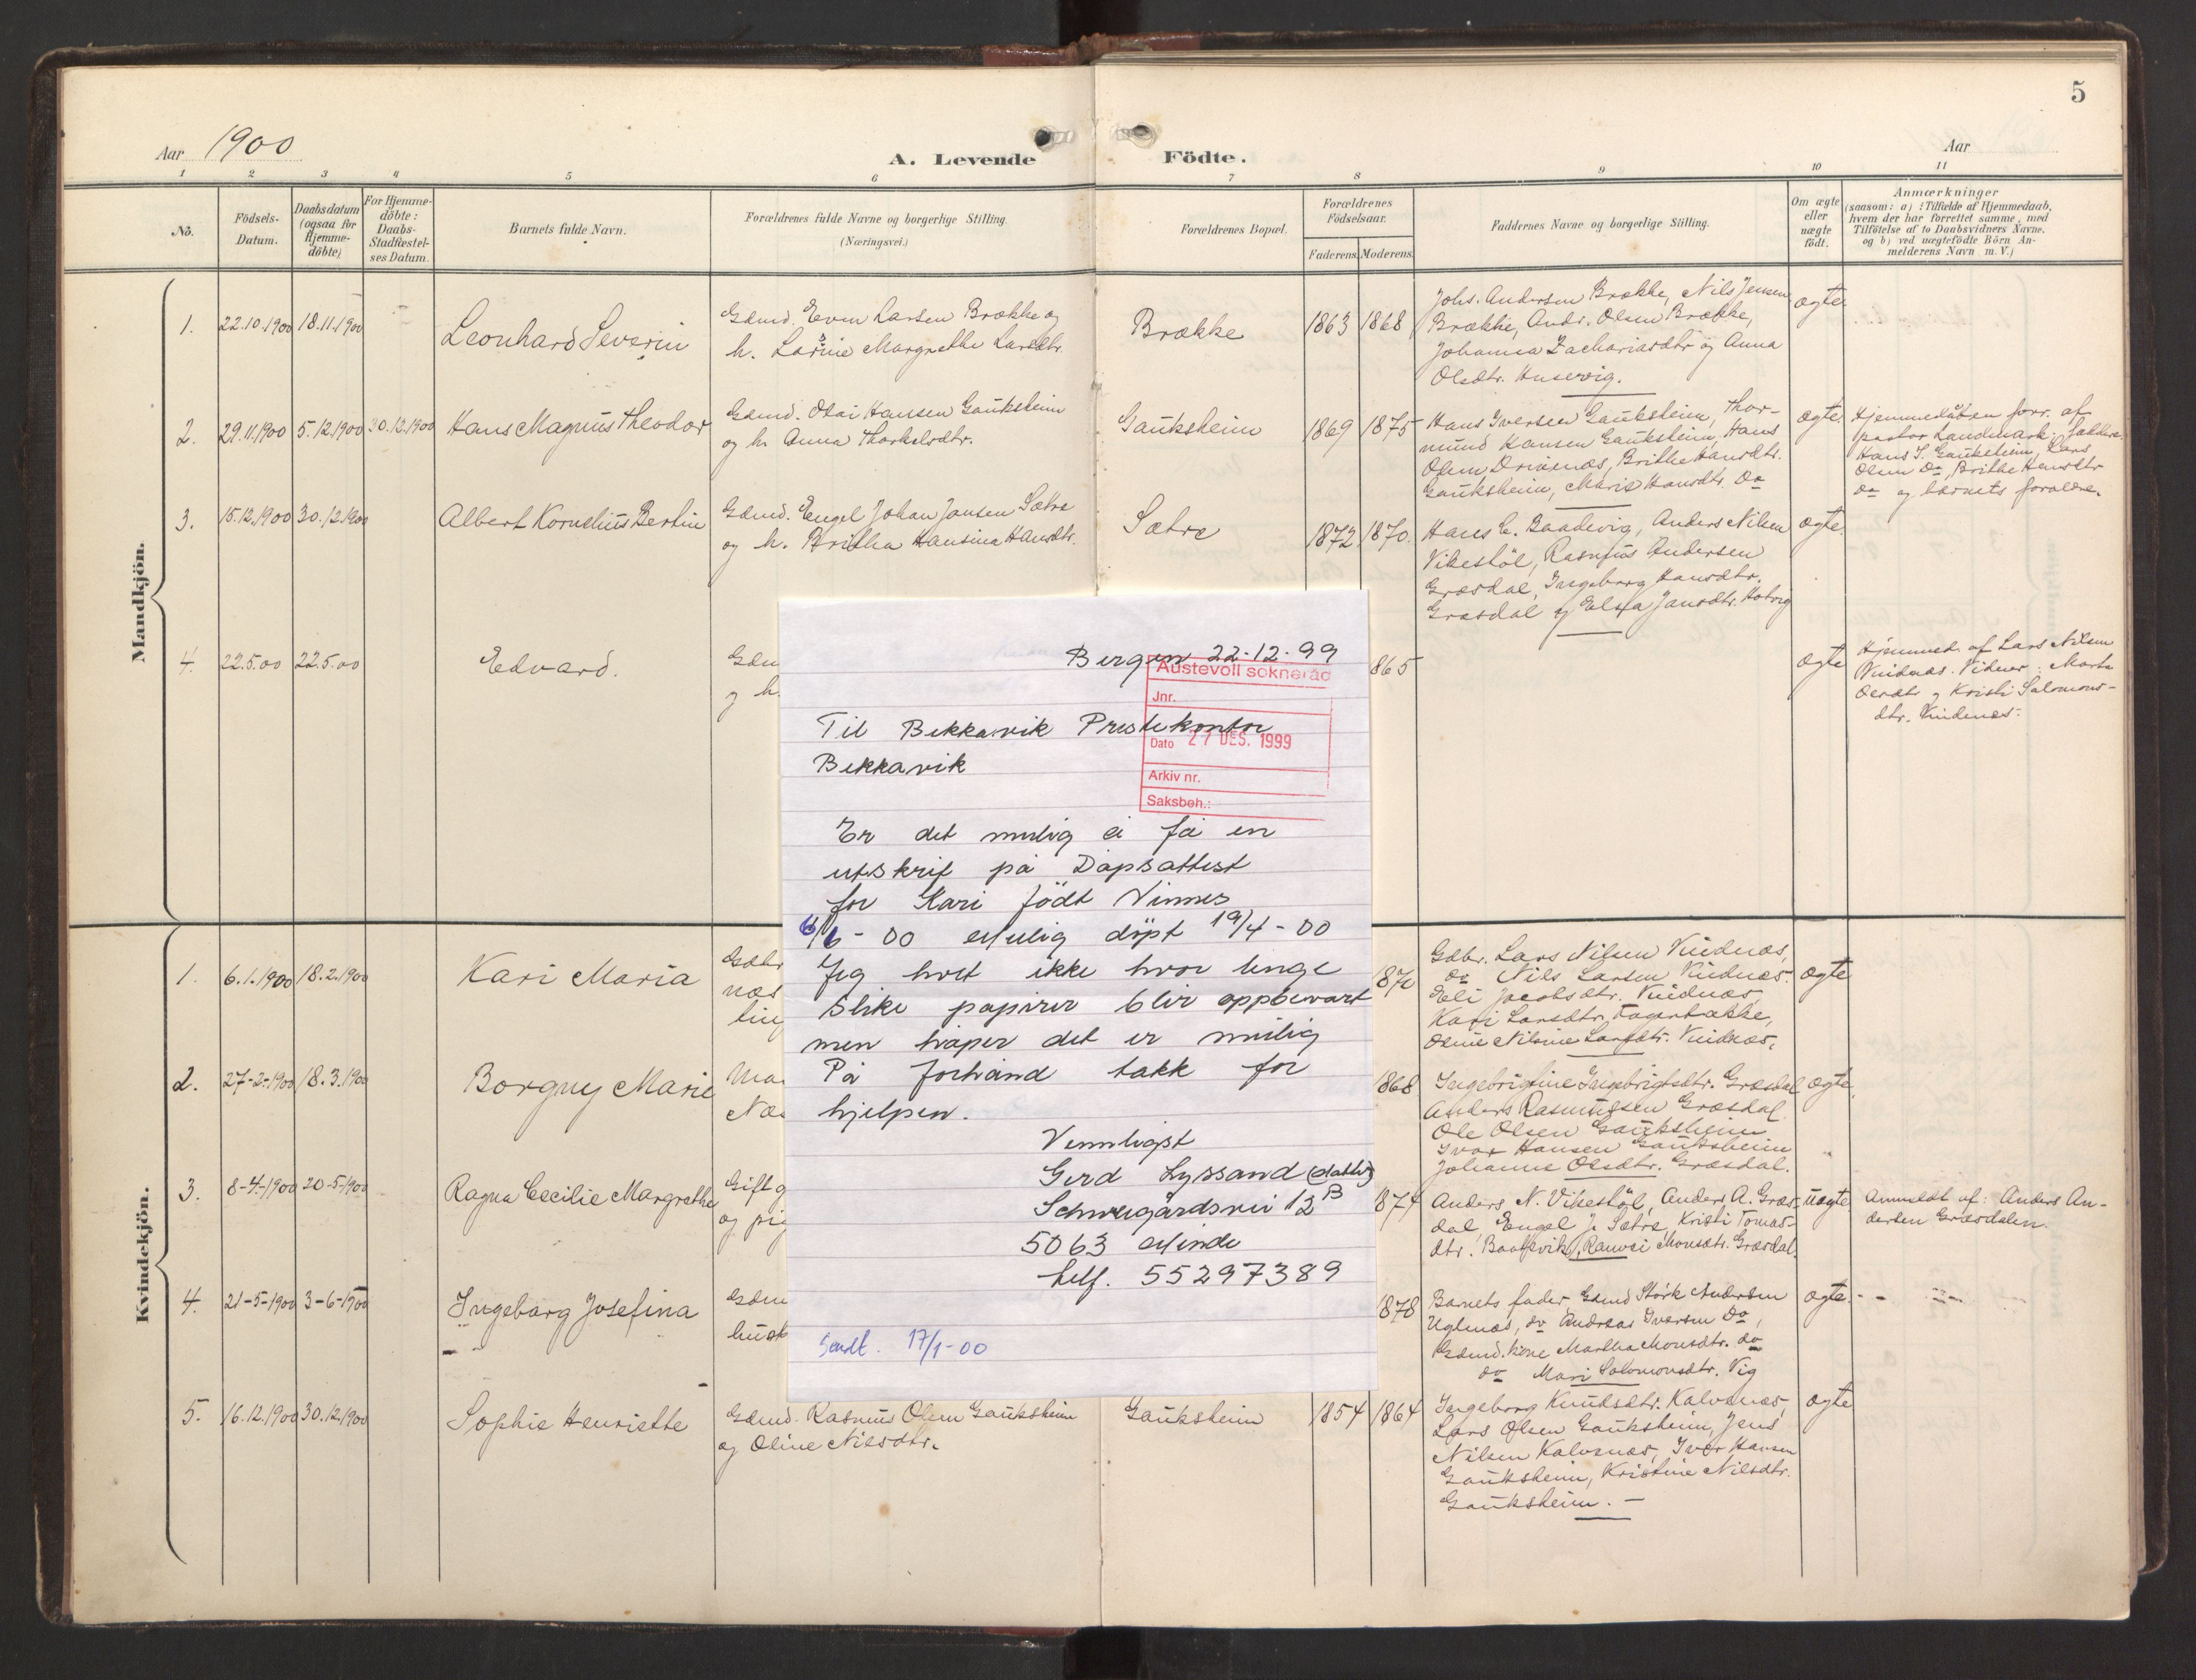 5
Aar 1900
A. Levende Födte.
Aar
1 2 3 4 5 6 7 8 9 10 11
No.
Födsels-
Datum.
Daabsdatum
(ogsaa for
Hjemme-
döbte)
For Hjemme-
döbte:
Daabs-
Stadfæstel-
ses Datum.
Barnets fulde Navn.
Forældrenes fulde Navne og borgerlige Stilling.
(Næringsvei.)
Forældrenes Bopæl.
Forældrenes
Födselsaar.
Faderens. Moderens.
Faddernes Navne og borgerlige Stilling.
Om ægte
eller
uægte
födt.
Anmærkninger
(saasom: a) i Tilfælde af Hjemmedaab,
hvem der har forrettet samme, med
Tilföielse af to Daabsvidners Navne.
og b) ved uægtefödte Börn An-
melderens Navn m. V.)
Mandkjön.
1. 22.10.1900 18.11.1900 Leonhard Severin
Gdmd. Even Larsen Brække og
h. Larine Margrethe Larsdtr.
Brække 1863 1868
Johs. Andersen Brække, Nils Jensen
Brække, Andr. Olsen Brække,
Johanna Zachariasdtr og Anna
Olsdtr. Husevig.
ægte
2. 29.11.1900 5.12.1900 30.12.1900 Hans Magnus Theodor
Gdmd. Otai Hansen Gauksheim
og h. Anna Thorkelsdtr.
Gauksheim 1869 1875
Hans Iversen Gauksheim, Thor-
mund Hansen Gauksheim, Hans
Olsen Drivenæs, Brithe Hansdtr.
Gauksheim, Marie Hansdtr. Do
ægte.
Hjemmedåben forr. af
pastor Landmark. faddere:
Hans I. Gauksheim, Lars
Olsen Do, Brithe Hansdtr
Do og barnets forældre.
3. 15.12.1900 30.12.1900 Albert Kornelius Bertin
Gdmd. Engel Johan Jansen Sætre
og h. Britha Hansina Hansdtr.
Sætre 1872 1870.
Hans C. Baadevig, Anders Nilsen
Vikestöl, Rasmus Andersen
Græsdal, Ingeborg Hansdtr.
Græsdal og Elsa Jansdtr.
ægte.
4. 22.5.00 22.5.00 Edvard.
Gdm
og h.
865
ægte
Hjemmed. af Lars Nilsen
Vindnæs. Vidner: Marta
Olsdtr og Kristi Salomons-
dtr. Vindenæs.
Bergen 22-12-99
Austevoll sokneråd
Jnr.
Dato 27 DES. 1999
Arkiv nr.
Saksbeh.:
Til Bekkarvik Prestekontor
Bekkarvik
Er det mulig å få en
utskrif på Dåpsattest
for Kari født Vinnes
6/1-00 mulig døpt 19/4-00
Jeg hvet ikke hvor lenge
slike papirer blir oppbevart
men håper det er mulig
På forhånd takk for
hjelpen.
Vennligst
Gerd Lyssand (datter)
Schweigårdsvei 12 B
5063 Minde
telf. 55297389
Sendt. 17/1-00
Kvindekjön.
1. 6.1.1900 18.2.1900 Kari Maria
Gdbr
næs
tin
1870
Gdbr. Lars Nilsen Vindnæs,
do Nils Larsen Vindnæs.
Eli Jacobsdtr. Vindnæs,
Kari Larsdtr. Fagerbakke,
Oline Nilsine Larsdtr. Vindnæs.
ægte
2. 27-2-1900 18.3.1900 Borgny Marie
Ma
Næs
1868
Ingebrigtine Ingebrigtsdtr. Græsdal
Anders Rasmussen Græsdal
Ole Olsen Gauksheim
Ivar Hansen Gauksheim
Johanne Olsdtr. Græsdal.
ægte.
3. 8-4-1900 20-5-1900 Ragna Cecilie Margrethe
Gift g
og pig
874
Anders N. Vikestöl, Anders A. Græs-
dal, Engel J. Sætre, Kristi Tomas-
dtr. Baadsvik, Ranvei Monsdtr. Græsdal.
uægte
Anmeldt af: Anders An-
dersen Græsdalen.
4. 21-5-1900 3-6-1900 Ingeborg Josefina
Gdm
husk
1878
Barnets fader Gdmd Störk Andersen
Uglenæs, do Andreas Iversen Do,
Gdmd. kone Martha Monsdtr. do
do Mari Salomonsdtr. Vig
ægte.
5. 16.12.1900 30.12.1900 Sophie Henriette
Gdmd. Rasmus Olsen Gauksheim
og Oline Nilsdtr.
Gauksheim 1854 1864
Ingeborg Knudsdtr. Kalvenæs,
Lars Olsen Gauksheim, Jens
Nilsen Kalvenæs, Ivar Hansen
Gauksheim, Kristine Nilsdtr.
Gauksheim. —
ægte